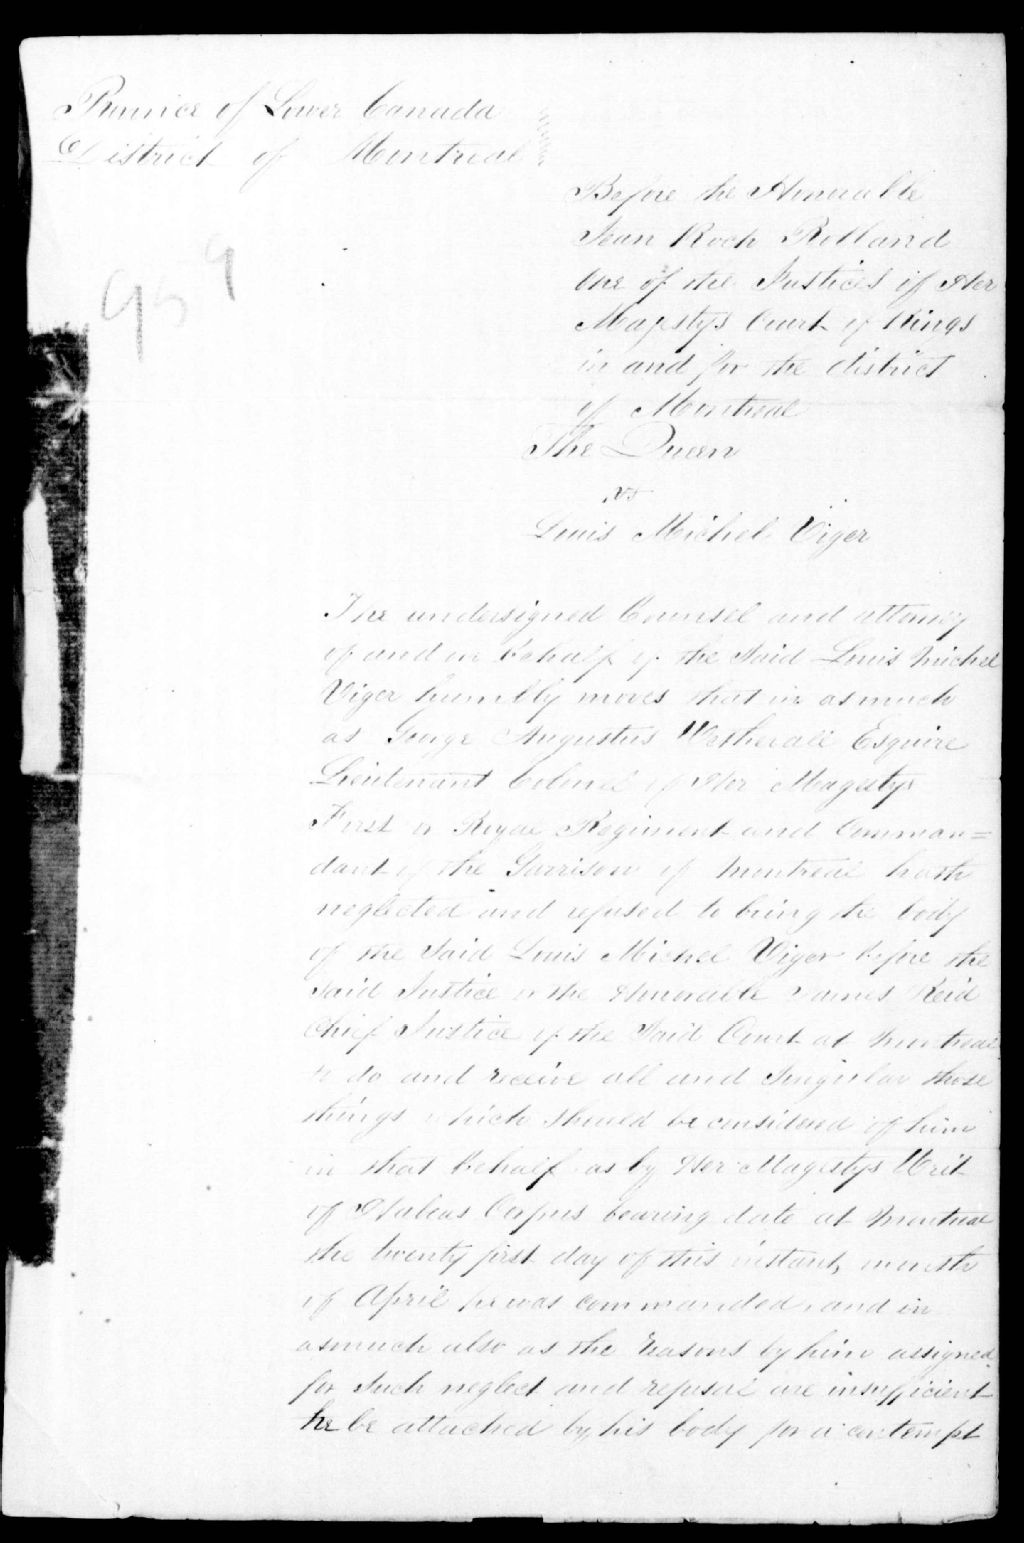 Province of Lower Canada
District of Montreal
Before the Honorable
Jean Roch Rolland
One of the Justices of Her
Majestys Court of Kings
in and for the district
of Montreal
The Queen
vs
Louis Michel Viger
959
The undersigned Counsel and attorney
of and in behalf of the Said Louis Michel
Viger humbly moves that in as much
as George Augustus Wetherall Esquire
Lieutenant Colonel of Her Magestys
First or Royal Regiment and Comman=
dant of the Garrison of Montreal hath
neglected and refused to bring the body
of the Said Louis Michel Viger before the
Said Justice or the Honorable James Reid
Chief Justice of the Said Court at Montreal
to do and receive all and Singular those
things which Should be considered of him
in that behalf as by Her Magestys Writ
of Habeas Corpus bearing date at Montreal
the twenty first day of this instant, month
of April he was commanded, and in
asmuch also as the reasons by him assigned
for Such neglect and refusal are insufficient
he be attached by his body for a contempt